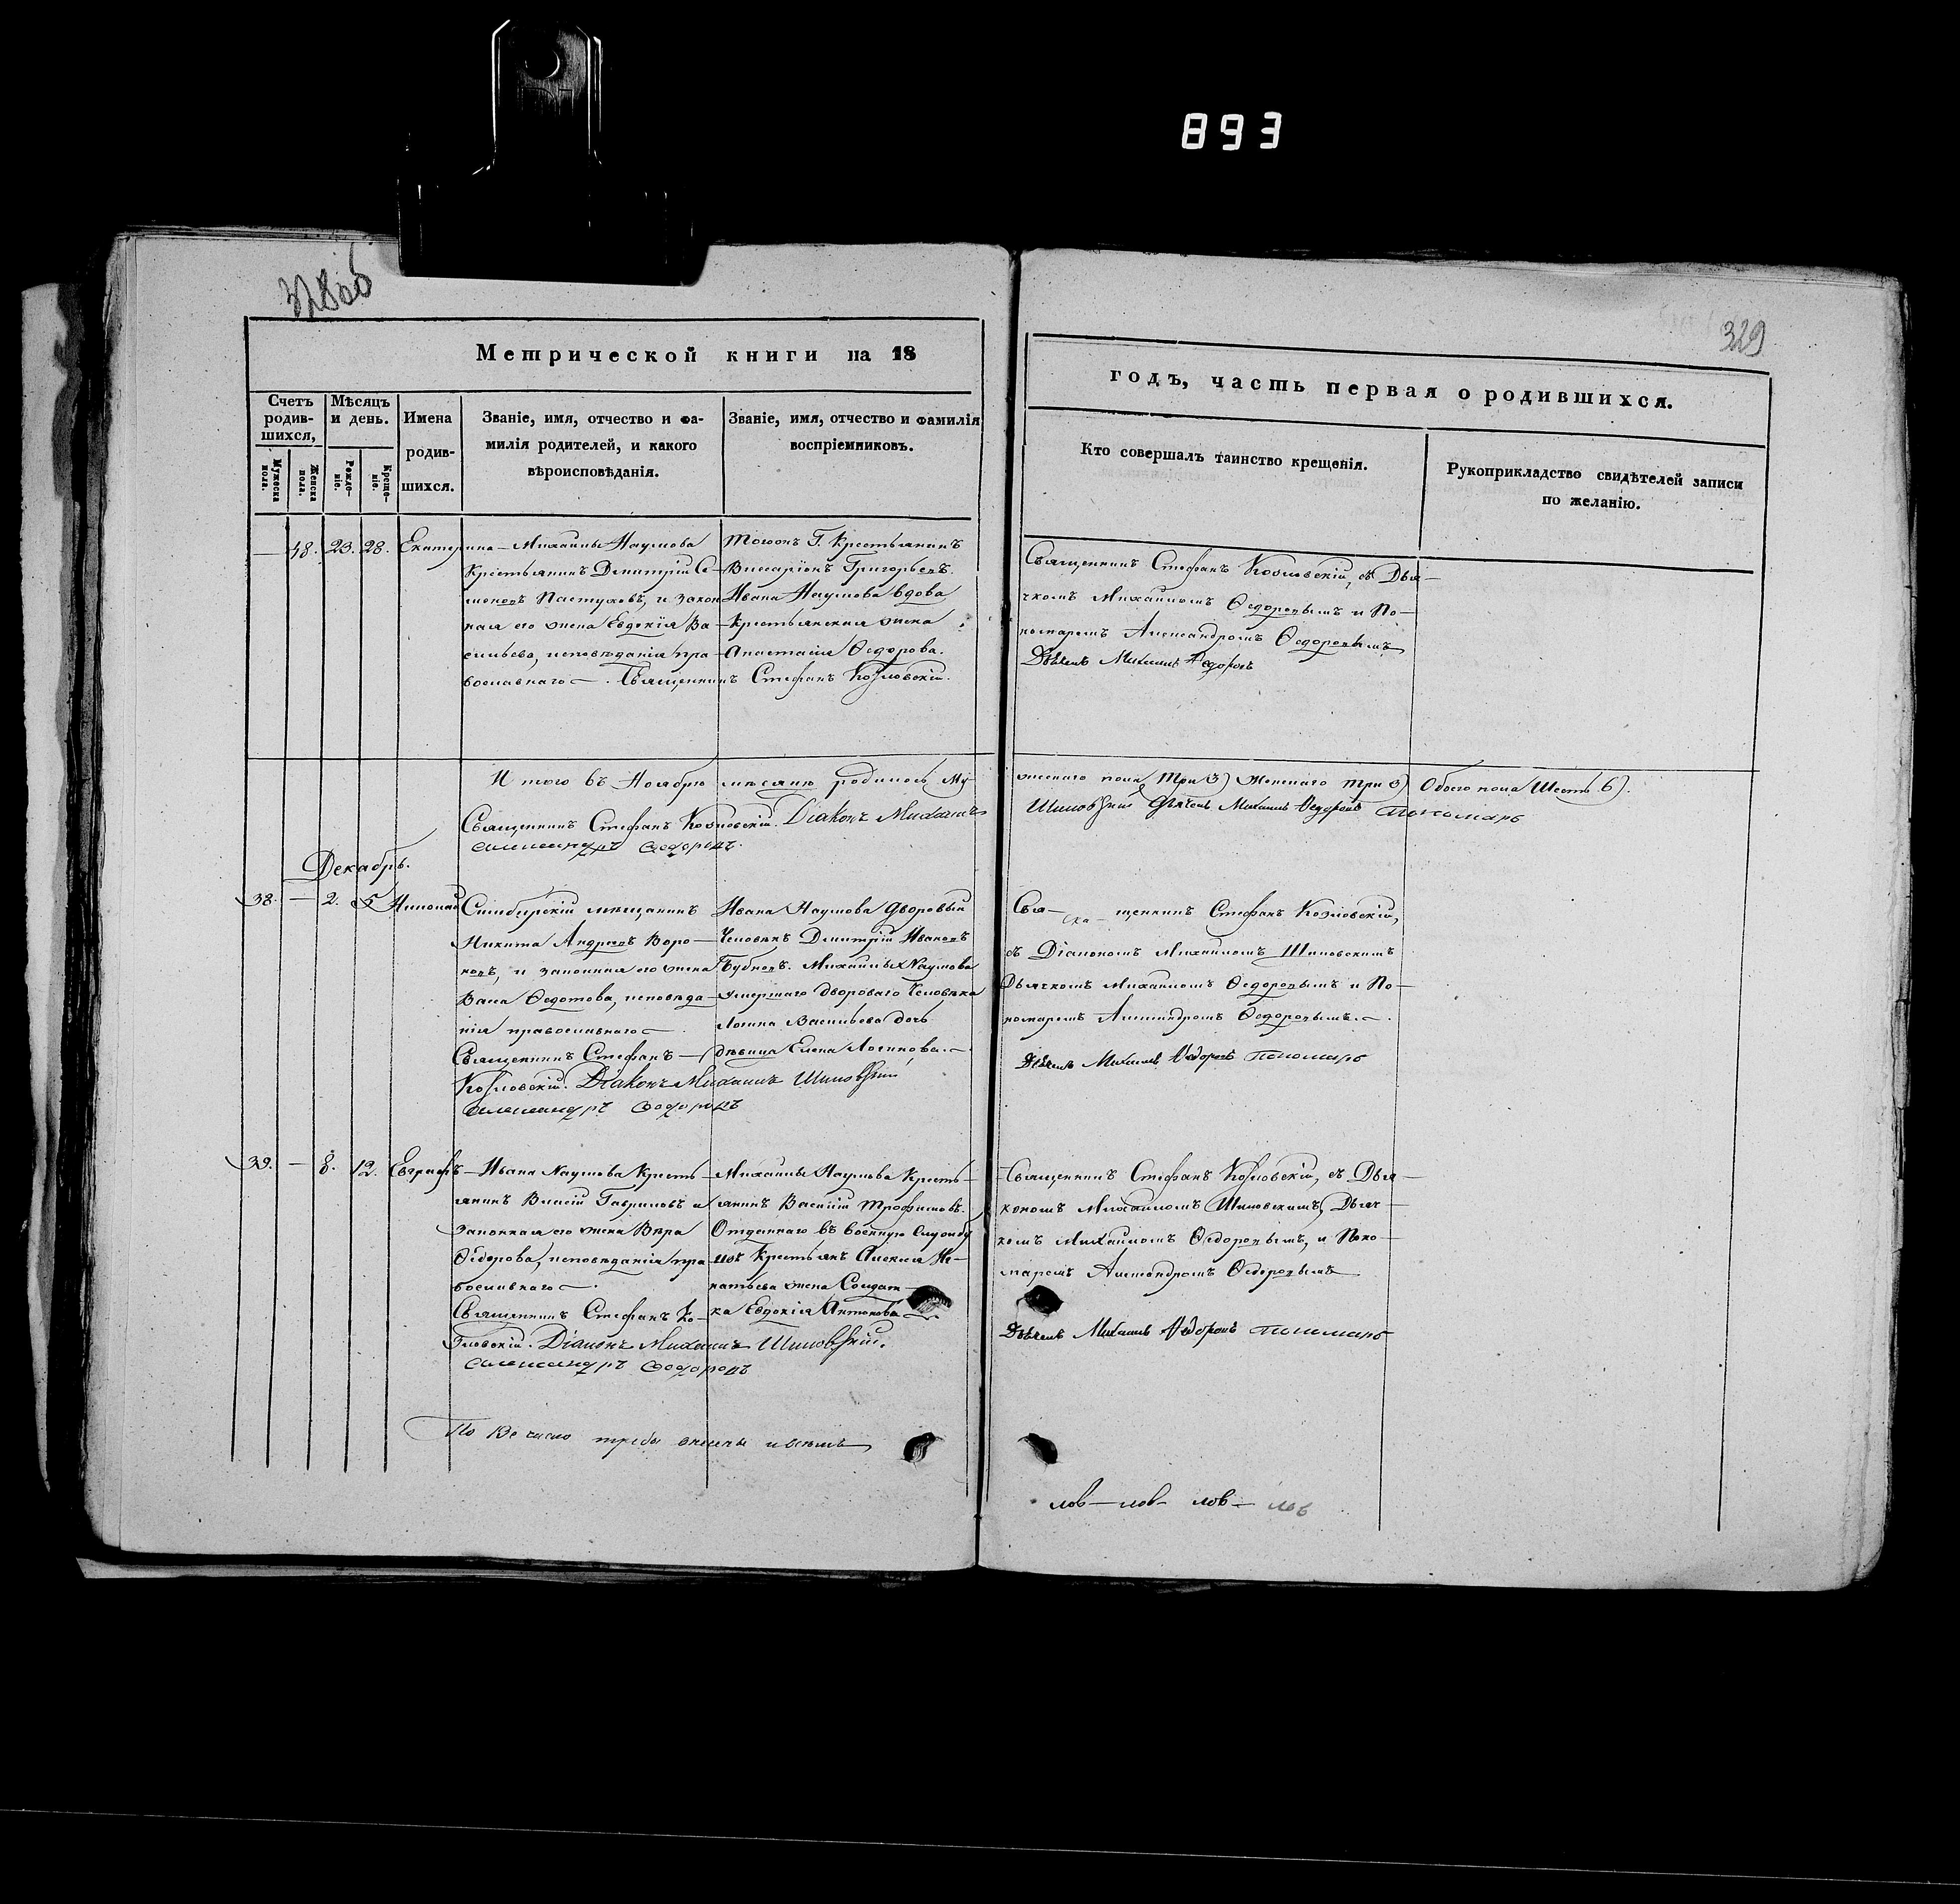 893
328 об
329
Метрической книги на 18
годъ, часть первая о родившихся.
Счетъ родив-шихся,
Мужеска пола.
Женска пола.
Мѣсяцъ и день.
Рожде-ніе.
Креще-ніе.
Имена родив-шихся.
Званіе, имя, отчество и фа-
милія родителей, и какого
вѣроисповѣданія.
Званіе, имя, отчество и фамилія
воспріемниковъ.
Кто совершалъ таинство крещенія.
Рукоприкладство свидѣтелей записи
по желанію.
— 48. 23. 28. Екатерина
Михаилы Наумова
Крестьянинъ Дмитрій Се-
меновъ Пастуховъ, и закон
ная его жена Евдокія Ва-
сильева, исповѣданія пра-
вославнаго —. Священникъ Стефанъ Козловскій.
Тогожъ Г. Крестьянинъ
Виссаріонъ Григорьевъ.
Ивана Наумова вдова
Крестьянская жена
Анастасія Ѳедорова.
Священникъ Стефанъ Козловскій, съ Дья-
чкомъ Михаиломъ Ѳедоровымъ и По-
номаремъ Александромъ Ѳедоровымъ
Дьячекъ Михаилъ Федоровъ
И того въ Ноябрѣ мѣсяцѣ родилось му-
жескаго пола Три 3) Женскаго три 3) Обоего пола Шесть 6).
Священникъ Стефанъ Козловскій. Діаконъ Михаилъ
Шиловскій Дьячекъ Михаилъ Федоровъ пономарь
александръ Федоровъ.
Декабрь.
38. — 2. 5 Николай
Симбирскій мѣщанинъ
Никита Андреевъ Воро-
новъ, и законная его жена
Васа Ѳедотова, исповѣда-
нія православнаго —.
Священникъ Стефанъ —
Козловскій. Діаконъ Михаилъ Шиловскій
александръ Федоровъ
Ивана Наумова Дворовый
Человѣкъ Дмитрій Ивановъ
Бубновъ. Михаилы Наумова
умершаго дворового человѣка
Логина Васильева дочь
дѣвица Елена Логинова. —
Свя- щенникъ Стефанъ Козловскій,
съ Діакономъ Михаиломъ Шиловскимъ
Дьячкомъ Михаиломъ Ѳедоровымъ и По-
номаремъ Александромъ Ѳедоровымъ. —
Дьячекъ Михаилъ Федоровъ пономарь
39. — 8. 12. Евграфъ
Ивана Наумова Кресть-
янинъ Власій Гавриловъ и
законная его жена Вѣра
Ѳедорова, исповѣданія пра-
вославнаго —.
Священникъ Стефанъ Ко-
зловскій. Діаконъ Михаилъ Шиловскій.
александръ Федоровъ
Михаилы Наумова Кресть-
янинъ Василій Трофимовъ.
Отданнаго въ военную службу
изъ Крестьянъ Алексея Иг-
натьева жена Солдат-
ка Евдокія Антонова
Священникъ Стефанъ Козловскій, съ Діа-
кономъ Михаиломъ Шиловскимъ, Дьяч-
комъ Михаиломъ Ѳедоровымъ, и Поно-
маремъ Александромъ Ѳедоровымъ
Дьячекъ Михаилъ Федоровъ пономарь
По число требы внесены
лов — лов — лов — лов